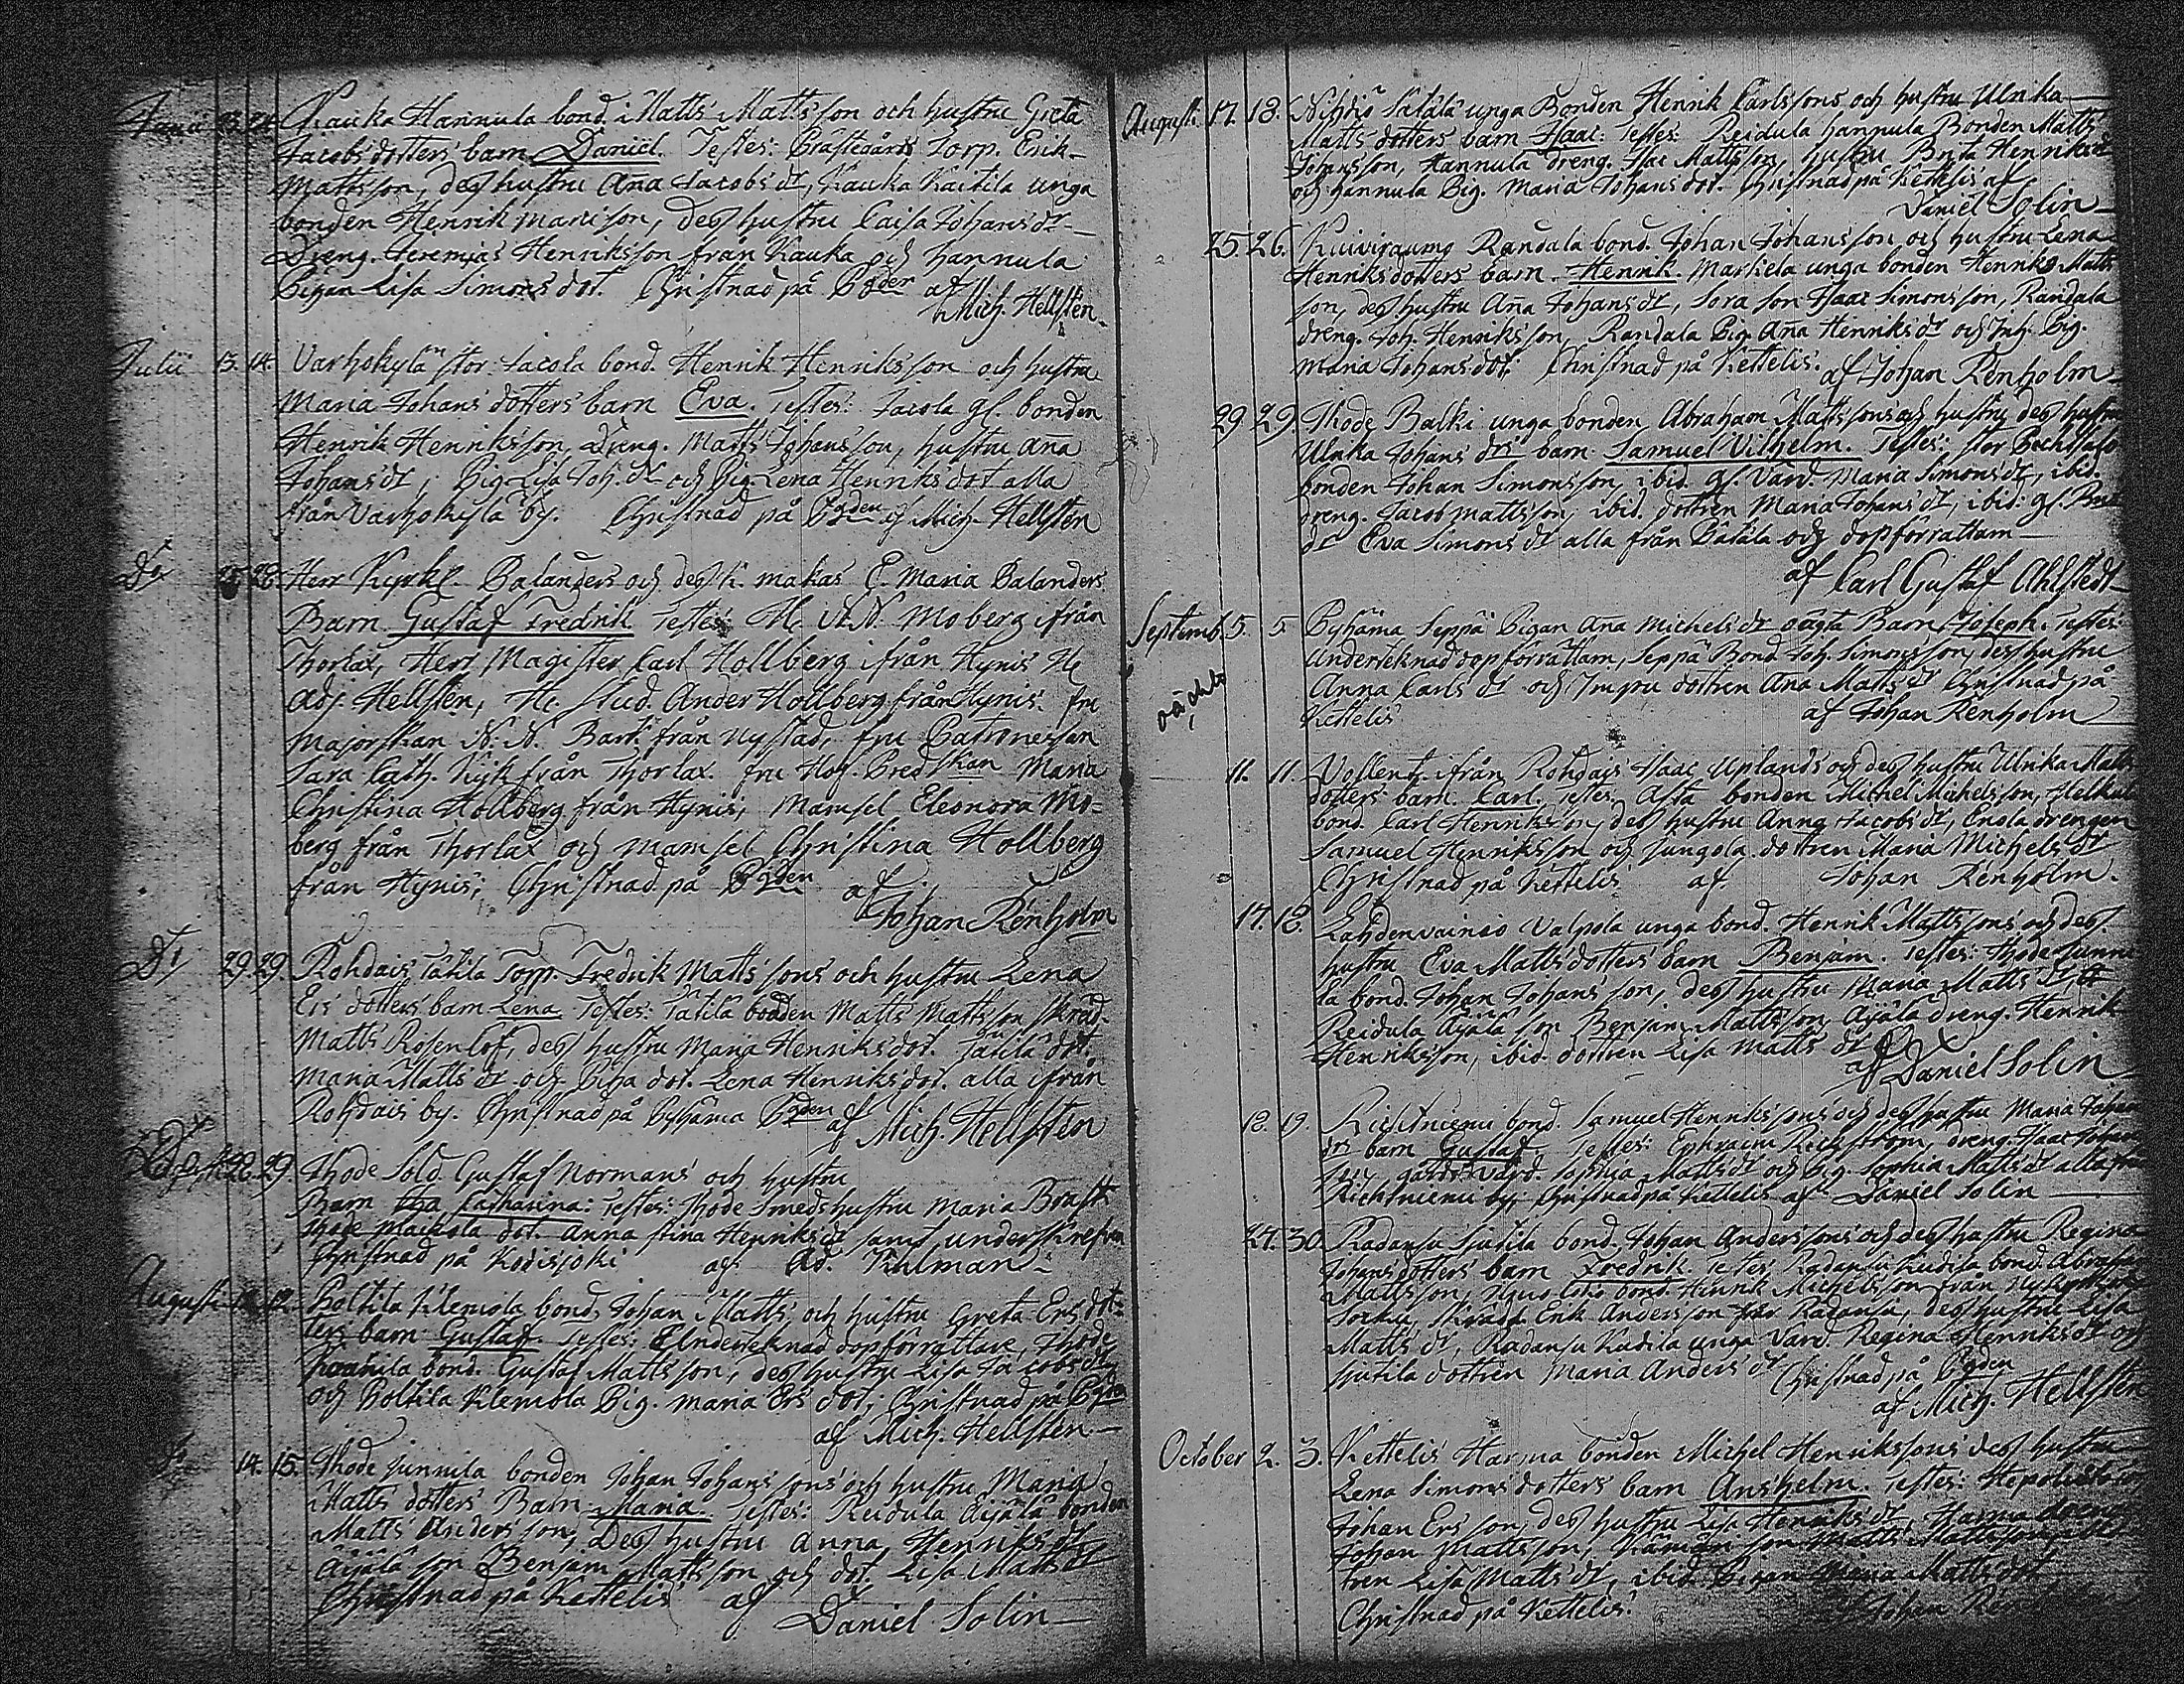 Kauka Hannula bond. Matts Mattsson och hustru Greta
Jacobs dotters barn Daniel. Testes: Prästegårds Torp. Erik
Mattsson, dess hustru Aña Jacobs dr, Kauka Kaitila unga
bonden Henrik Mariison, dess hustru Caisa Johans dr
Dreng. Jeremias Henriksson från Kauka och Hannula
Pigan Lisa Simons dot. Christnad på Bgder af
Mich. Hellsten.
Julii 13. 14. Varhokylä stor Jacola bond. Henrik Henriksson och hustru
Maria Johans dotters barn Eva. Testes: Jacola gl. bonden
Henrik Henriksson, Dreng. Matts Johansson, hustru Aña
Johans dr, Pig. Lisa Joh. dr och Pig. Lena Henriks dot alla
från Varhokylä by. Christnad på Bgden af Mich. Hellsten
28. Herr Kyrkl. Palanders och dess K. makas E. Maria Palanders
Barn Gustaf Fredrik Testes: H. N.N. Moberg ifrån
Thorlax, Herr Magister Carl Hollberg ifrån Hynis H.
Adj. Hellsten, H. stud. Ander Hollberg från Hynis. fru
Majorskan N. N. Bart. från Nystad, fru Patronessan
Sara Cath. Kijk från Thorlax. fru Hof. Predskan Maria
Christina Hollberg från Hynis, Mamsel Eleonora Mo-
berg från Thorlax och Mamsel Christina Hollberg
från Hynis, Christnad på Bgden af
Johan Renholm
29. 29. Rohdais Tätilä Torp. Fredrik Matts sons och hustru Lena
Ers dotters barn Lena Testes: Tätilä bonden Matts Mattsson skräd.
Matts Rosenlöf, dess hustru Maria Henriks dot. Tätilä dot.
Maria Matts dr och Piga dot. Lena Henriks dot. alla ifrån
Rohdais by. Christnad på Byhäma Bgden af Mich. Hellsten
28. 29. Thode Sold. Gustaf Normans och hustru
Barn Catharina: Testes: Thode Smeds hustru Maria Brask
Thode dot. Anna Stina Henriks dr samt underskrefven
Christnad på Kodisjoki af Ad. Kulman
Augusti Poltila Klemola bond. Johan Matts, och hustru Greta Ers dot-
ters barn Gustaf. Testes: Undertecknad dopförrättare, Thode
bond. Gustaf Mattsson, dess hustru Lisa Jacobs dr
och Poltila Klemola Pig. Maria Ers dot, Christnad på Bgden
af Mich. Hellsten
14. 15. Thode Junnila bonden Johan Johans sons och hustru Maria
Matts dotters Barn Maria Testes: Reidula Äijälä bonden
Matts Anders son, Dess hustru Anna Henriks dr
Äijälä son Benjam Mattsson och dot. Lisa Matts dr
Christnad på Kettelis af Daniel Solin
Augusti 17. 18. Nihtiö Sätälä unga Bonden Henrik Carlssons och hustru Ulrika
Matts dotters barn Isaac: Testes: Reidula Hannula Bonden Matts
Johansson, Hannula dreng. Isac Mattsson, hustru Brita Henriks dr
och Hannula Pig. Maria Johans dot. Christnad på Kettelis af
Daniel Solin
25. 26. Kuiviraumo Randala bond. Johan Johansson och hustru Lena
Henriks dotters barn. Henrik. Markiela unga bonden Henriks Matts
son, dess hustru Aña Johans dr, Sora son Isaac Simonsson, Randala
dreng. Joh. Henriksson, Randala Pig. Aña Henriks dr och Inh. Pig.
Maria Johans dot. Christnad på Kettelis. af Johan Renholm
29. 29. Thode Palki unga bonden Abraham Mattssons och hustru dess hustru
Ulrika Johans drs barn Samuel Vilhelm. Testes: Stor
bonden Johan Simonsson, ibid. gl. Värd. Maria Simons dr, ibid.
dreng. Jacob Mattsson, ibid. dottren Maria Johans dr, ibid: gl.
dr Eva Simons dr alla från Pätälä och dopförrättarn
af Carl Gustaf Ahlstedt
Septemb. 5. 5. Byhäma Seppä Pigan Ana Michels dr oägta Barn Joseph. Testes:
Undertecknad dopförrättarn, Seppä Bond. Joh. Simonsson, dess hustru
Anna Carls dr och dottren Ana Matts dr Christnad på
Kettelis af Johan Renholm
oächta
11. 11. Vollent. ifrån Rohdais Isaac Uplands och dess hustru Ulrika Matts
dotters barn. Carl. Testes: Asta bonden Michel Michelsson,
bond. Carl Henriksson, dess hustru Anna Jacobs dr, Enola drengen
Samuel Henriksson och Jungola dottren Maria Michels dr
Christnad på Kettelis af Johan Renholm.
17. 18. Lahdenvainio Valpola unga bond. Henrik Mattssons och dess
hustru Eva Matts dotters barn Benjam. Testes: Thode Junni-
la bond. Johan Johansson, dess hustru Maria Matts dr, et
Reidula Äijälä son Benjam Mattsson, Äijälä dreng. Henrik
Henriksson, ibid. dottren Lisa Matts dr
af Daniel Solin
18. 19. Richtniemi bond. Samuel Henrikssons och dess hustru Maria Johans
drs barn Gustaf. Testes: Ephraim Rickström, dreng. Isaac Johans
son, värd. Sophia Matts dr och Pig. Sophia Matts dr alla från
Richtniemi by, Christnad på Kettelis af Daniel Solin
27. 30. Radansu Sjutila bond. Johan Anderssons och dess hustru Regina
Johans dotters barn Fredrik Testes: Radansu Kudila bond. Abraham
Mattsson, bond. Henrik Michelsson från
Sorku, Skrädd. Erik Andersson från Radansu, dess hustru Lisa
Matts dr, Radansu Kudila unga Värd. Regina Henriks dr och
Sjutila dottren Maria Anders dr Christnad på Bgden
af Mich. Hellsten
October 2. 3. Kettelis Harma bonden Michel Henrikssons dess hustru
Lena Simons dotters barn Anshelm. Testes:
Johan Ersson, dess hustru Lisa Henriks dr, Harma dreng
Johan Mattsson, son Matts Mattsson,
tren Lisa Matts dr, ibid. Pigan Maria Matts dot
Christnad på Kettelis. af Johan